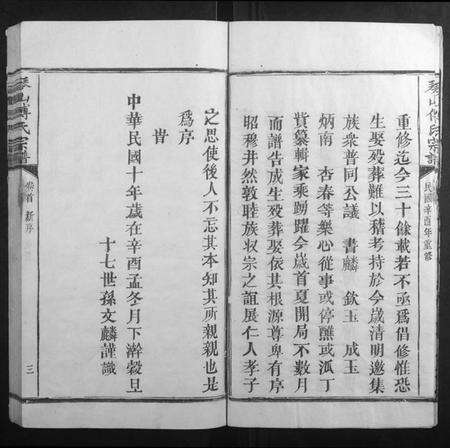 民國辛酉年重修
重修迄今三十餘載若不亟爲倡修惟恐
生娶殁葬難以稽考特於今歲清明邀集
族衆普同公議 書麟 欽玉 成玉
炳南 杏春等樂心從事或停醮或派丁
貲纂輯家乘踴躍今歲首夏開局不數月
而譜告成生殁葬娶依其根源尊卑有序
昭穆井然敦睦族収宗之誼展仁人孝子
琴山傅氏宗譜
卷首 新序
三
之思使後人不忘其本知其所親親也是
爲序
旹
中華民國十年歲在辛酉孟冬月下澣穀旦
十七世孫文麟謹識